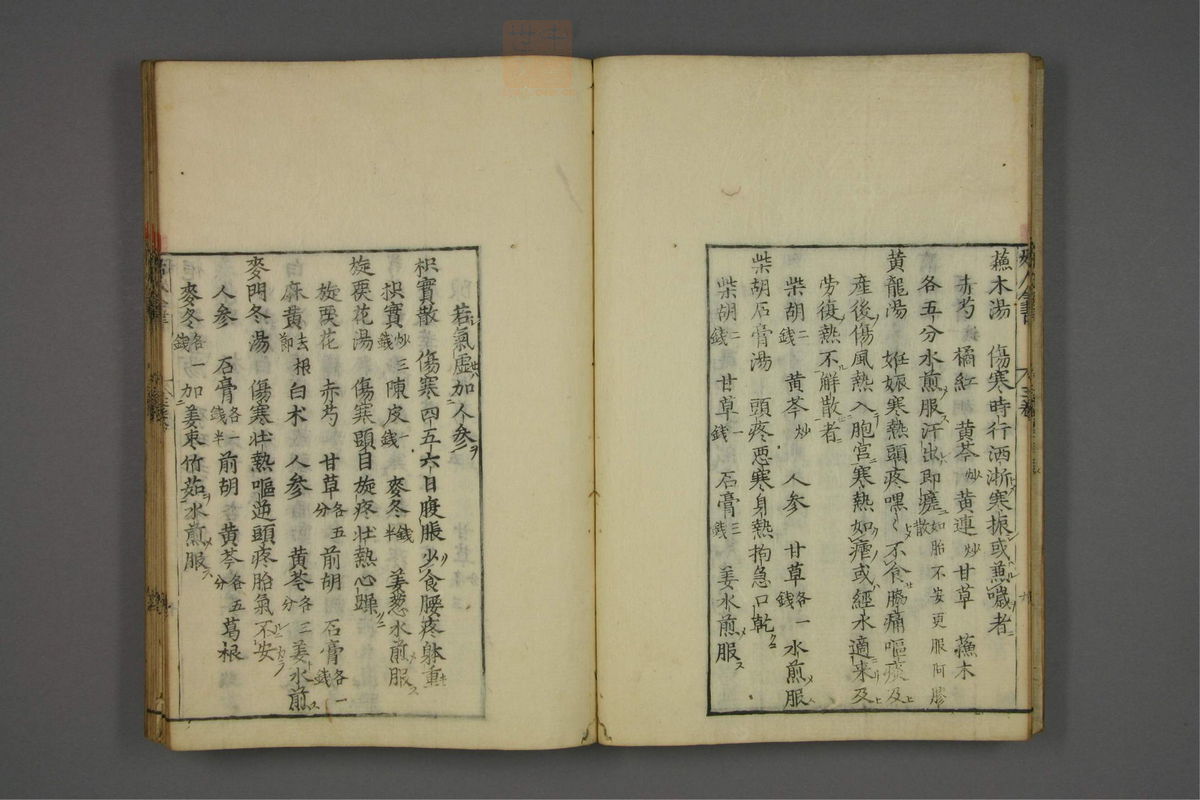 蘓木湯　傷寒時行洒淅寒振或兼噦者
赤芍　橘紅　黄芩炒黄連炒甘草　蘓木
各五分水煎服汗出即瘥如胎不安更服阿膠散
黄龍湯　妊娠寒熱頭疼嘿〻不食脇痛嘔痰及
産後傷風熱入胞宮寒熱如瘧或經水適来及
労復熱不解散者
柴胡二錢　黄芩炒　人参　甘草各一錢水煎服
柴胡石膏湯　頭疼悪寒身熱拘急口乾
柴胡二錢　甘草一錢　石膏三錢　姜水煎服
若氣虚加人参
枳實散　傷寒四五六日腹脹少食腰疼躰重
枳實炒三錢陳皮一錢　麥冬錢半　姜葱水煎服
旋覆花湯　傷寒頭目旋疼壮熱心躁
旋覆花　赤芍　甘草各五分　前胡　石膏各一錢
麻黄去根節白朮　人参　黄芩各三分姜水煎
麥門冬湯　傷寒壮熱嘔逆頭疼胎氣不安
人参　石膏各一錢半前胡　黄芩各五分葛根
麥冬各一錢加姜枣竹茹水煎服